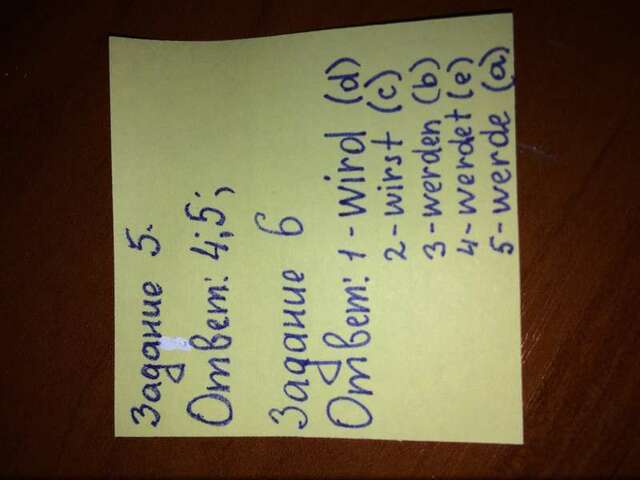 Задание 5.
Ответ: 4;5;
Задание 6
Ответ: 1-wird (d)
2-wirst (c)
3-werden (b)
4-werdet (e)
5-werde (a)